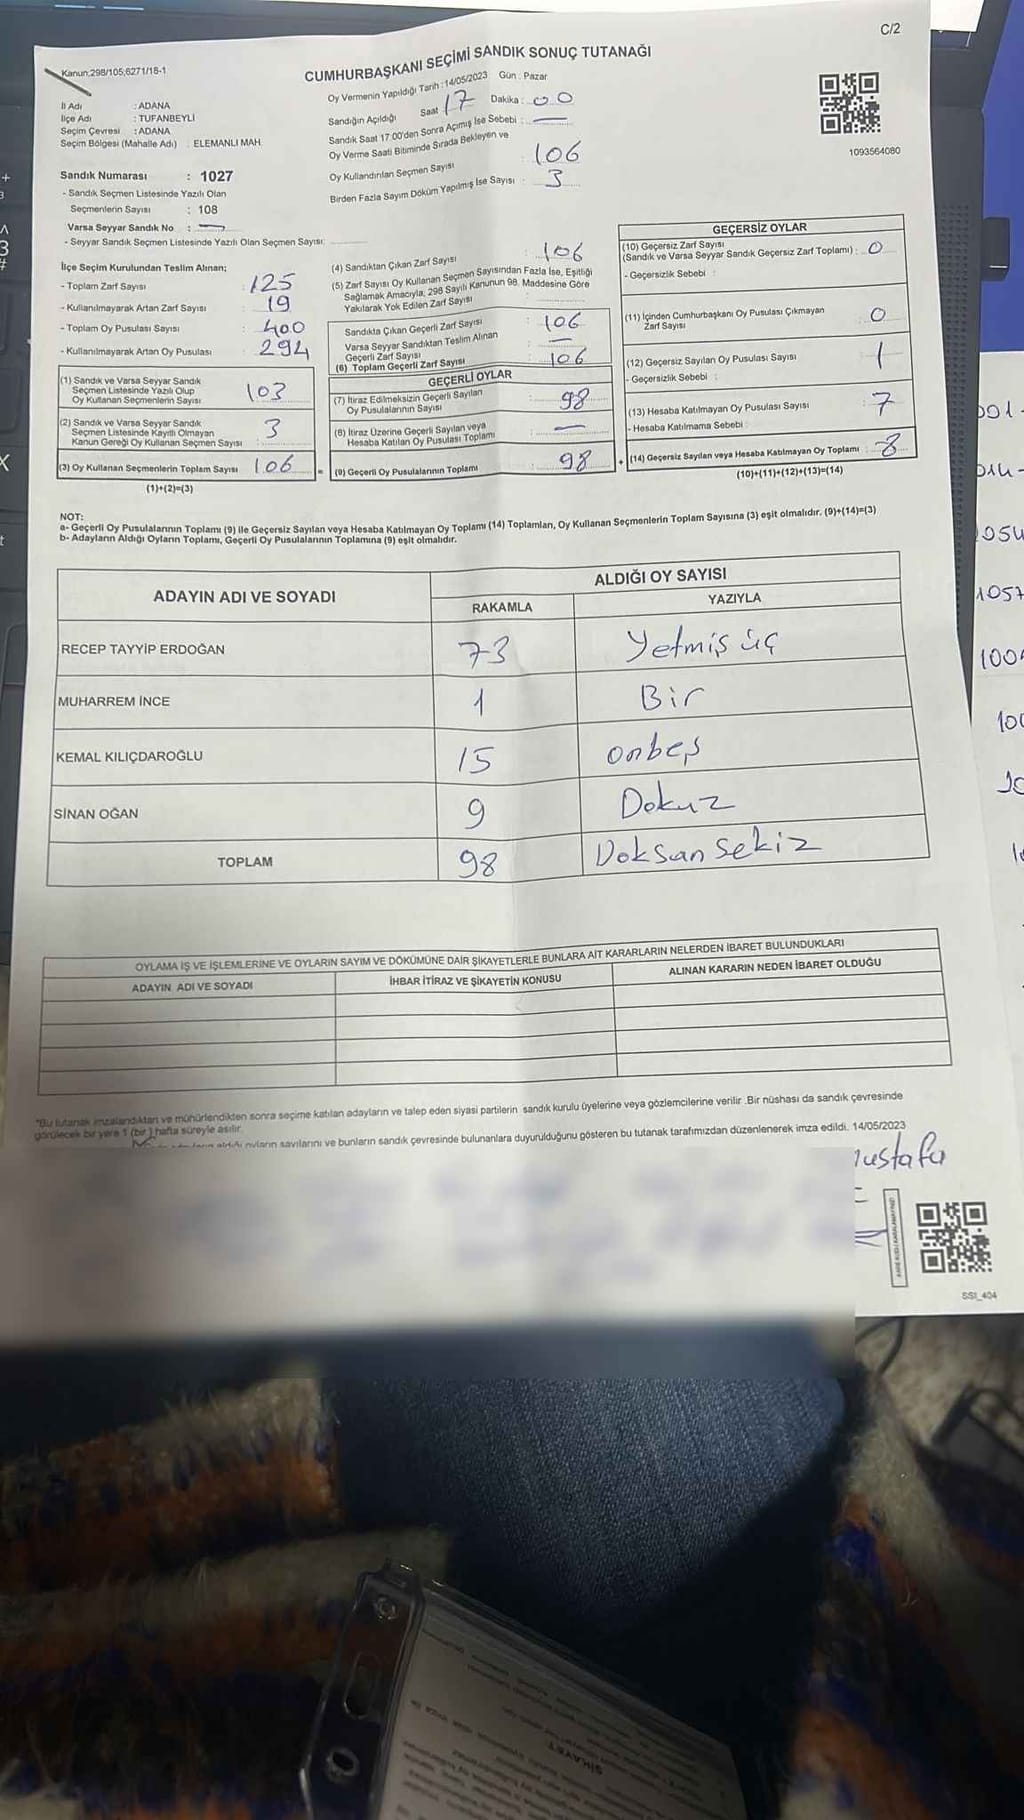 C/2
Kanun:298/105,6271/18-1
CUMHURBAŞKANI SEÇİMİ SANDIK SONUÇ TUTANAĞI
Oy Vermenin Yapıldığı Tarih : 14/05/2023 Gün : Pazar
Sandığın Açıldığı Saat 17 Dakika : 00
Sandık Saat 17.00'den Sonra Açımış İse Sebebi : —
Oy Verme Saati Bitiminde Sırada Bekleyen ve
Oy Kullandırılan Seçmen Sayısı : 106
Birden Fazla Sayım Döküm Yapılmış İse Sayısı : 3
1093564080
İl Adı : ADANA
İlçe Adı : TUFANBEYLİ
Seçim Çevresi : ADANA
Seçim Bölgesi (Mahalle Adı) : ELEMANLI MAH.
Sandık Numarası : 1027
- Sandık Seçmen Listesinde Yazılı Olan
Seçmenlerin Sayısı : 108
Varsa Seyyar Sandık No : —
- Seyyar Sandık Seçmen Listesinde Yazılı Olan Seçmen Sayısı:
İlçe Seçim Kurulundan Teslim Alınan;
- Toplam Zarf Sayısı : 125
- Kullanılmayarak Artan Zarf Sayısı : 19
- Toplam Oy Pusulası Sayısı : 400
- Kullanılmayarak Artan Oy Pusulası : 294
(1) Sandık ve Varsa Seyyar Sandık
Seçmen Listesinde Yazılı Olup
Oy Kullanan Seçmenlerin Sayısı : 103
(2) Sandık ve Varsa Seyyar Sandık
Seçmen Listesinde Kayıtlı Olmayan
Kanun Gereği Oy Kullanan Seçmen Sayısı : 3
(3) Oy Kullanan Seçmenlerin Toplam Sayısı : 106
(1)+(2)=(3)
(4) Sandıktan Çıkan Zarf Sayısı : 106
(5) Zarf Sayısı Oy Kullanan Seçmen Sayısından Fazla İse, Eşitliği
Sağlamak Amacıyla, 298 Sayılı Kanunun 98. Maddesine Göre
Yakılarak Yok Edilen Zarf Sayısı :
Sandıkta Çıkan Geçerli Zarf Sayısı : 106
Varsa Seyyar Sandıktan Teslim Alınan
Geçerli Zarf Sayısı : —
(6) Toplam Geçerli Zarf Sayısı : 106
GEÇERLİ OYLAR
(7) İtiraz Edilmeksizin Geçerli Sayılan
Oy Pusulalarının Sayısı : 98
(8) İtiraz Üzerine Geçerli Sayılan veya
Hesaba Katılan Oy Pusulası Toplamı : —
= (9) Geçerli Oy Pusulalarının Toplamı : 98
GEÇERSİZ OYLAR
(10) Geçersiz Zarf Sayısı
(Sandık ve Varsa Seyyar Sandık Geçersiz Zarf Toplamı) : 0
- Geçersizlik Sebebi :
(11) İçinden Cumhurbaşkanı Oy Pusulası Çıkmayan
Zarf Sayısı : 0
(12) Geçersiz Sayılan Oy Pusulası Sayısı : 1
- Geçersizlik Sebebi :
(13) Hesaba Katılmayan Oy Pusulası Sayısı : 7
- Hesaba Katılmama Sebebi
+ (14) Geçersiz Sayılan veya Hesaba Katılmayan Oy Toplamı : 8
(10)+(11)+(12)+(13)=(14)
NOT:
a- Geçerli Oy Pusulalarının Toplamı (9) ile Geçersiz Sayılan veya Hesaba Katılmayan Oy Toplamı (14) Toplamları, Oy Kullanan Seçmenlerin Toplam Sayısına (3) eşit olmalıdır. (9)+(14)=(3)
b- Adayların Aldığı Oyların Toplamı, Geçerli Oy Pusulalarının Toplamına (9) eşit olmalıdır.
ADAYIN ADI VE SOYADI
ALDIĞI OY SAYISI
RAKAMLA YAZIYLA
RECEP TAYYİP ERDOĞAN 73 Yetmiş üç
MUHARREM İNCE 1 Bir
KEMAL KILIÇDAROĞLU 15 onbeş
SİNAN OĞAN 9 Dokuz
TOPLAM 98 Doksan sekiz
OYLAMA İŞ VE İŞLEMLERİNE VE OYLARIN SAYIM VE DÖKÜMÜNE DAİR ŞİKAYETLERLE BUNLARA AİT KARARLARIN NELERDEN İBARET BULUNDUKLARI
ADAYIN ADI VE SOYADI İHBAR İTİRAZ VE ŞİKAYETİN KONUSU ALINAN KARARIN NEDEN İBARET OLDUĞU
*Bu tutanak imzalandıktan ve mühürlendikten sonra seçime katılan adayların ve talep eden siyasi partilerin sandık kurulu üyelerine veya gözlemcilerine verilir .Bir nüshası da sandık çevresinde
görülecek bir yere 1 (bir ) hafta süreyle asılır.
aldığı oyların sayılarını ve bunların sandık çevresinde bulunanlara duyurulduğunu gösteren bu tutanak tarafımızdan düzenlenerek imza edildi. 14/05/2023
ustafa
SSI_404
1057
ŞİKAYET